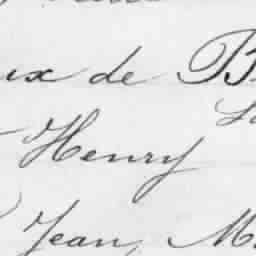 ux de B
Henry
Jean, M